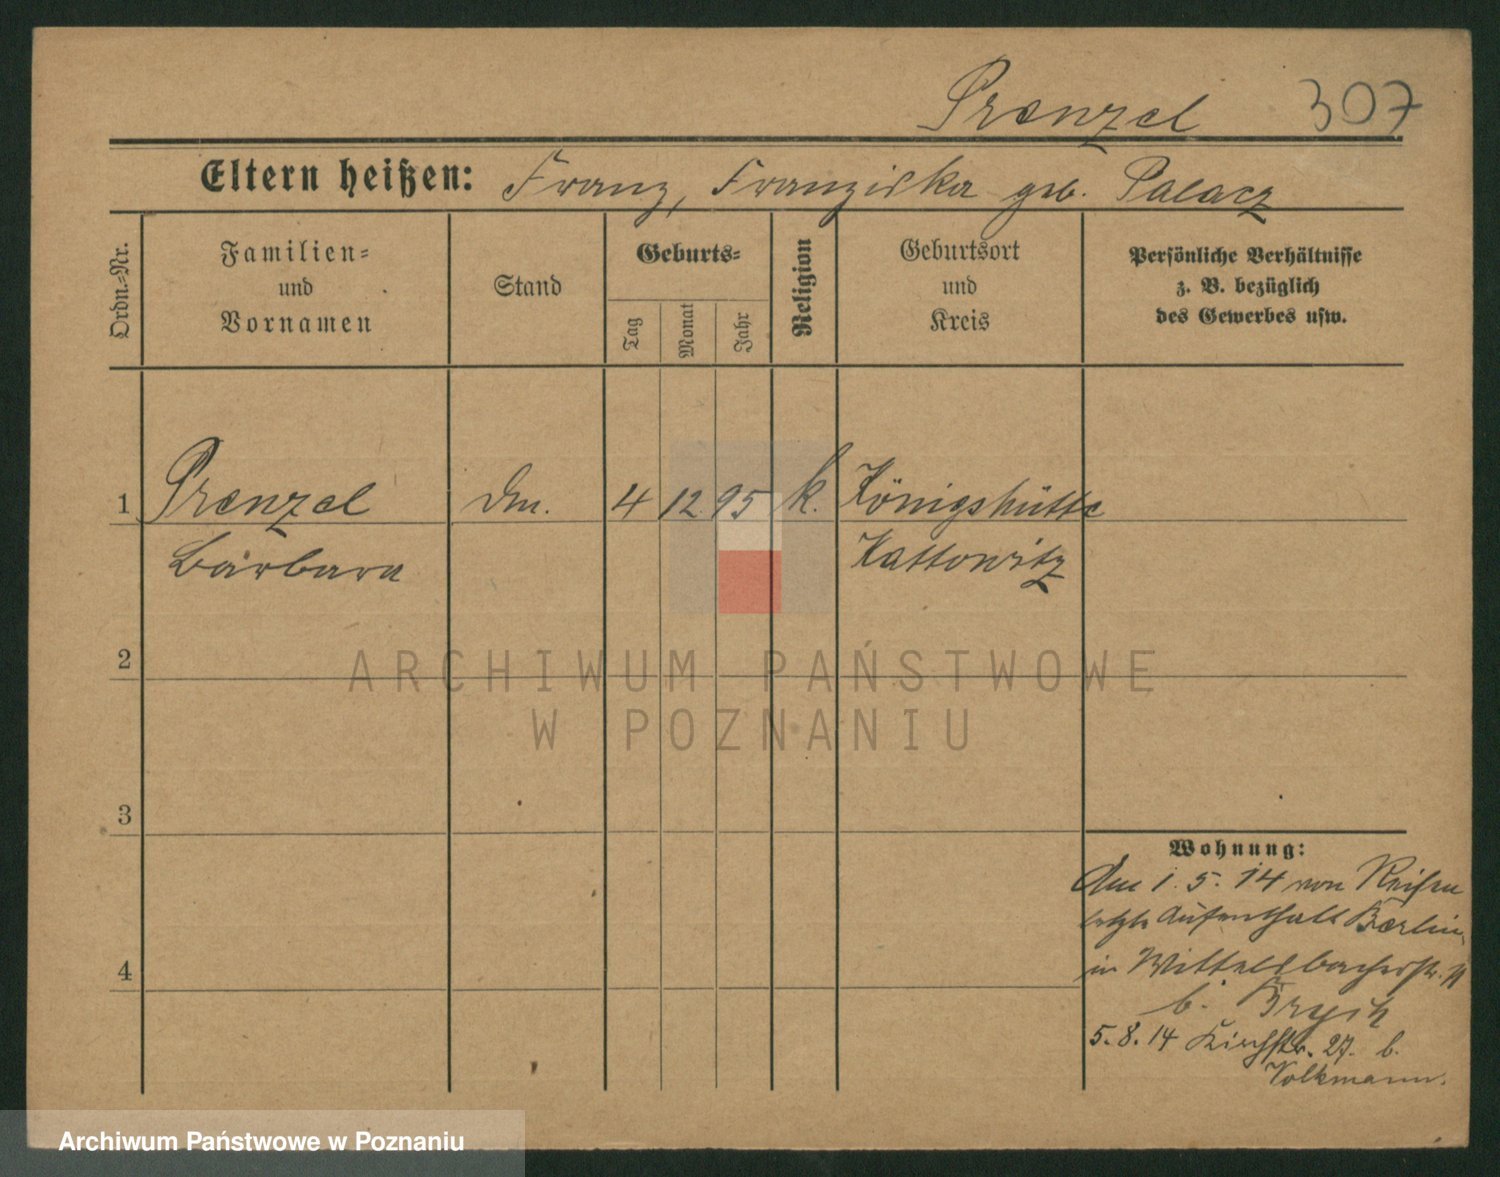 Prenzel 307
Eltern heißen: Franz, Franziska geb. Palacz
Ordn.-Nr.
Familien-
und
Vornamen
Stand
Geburts-
Tag
Monat
Jahr
Religion
Geburtsort
und
Kreis
Persönliche Verhältnisse
z. B. bezüglich
des Gewerbes usw.
1 Prenzel Dm. 4 12. 95 k. Königshütte
Bärbara Kattowitz
2
3
4
Wohnung:
Am 1. 5. 14 von Reisen
letzte Aufenthalt Berlin,
in Wittelsbacherstr.
b.
5. 8. 14 Kirchstr. 27. b.
Volkmann.
ARCHIWUM PAŃSTWOWE
W POZNANIU
Archiwum Państwowe w Poznaniu